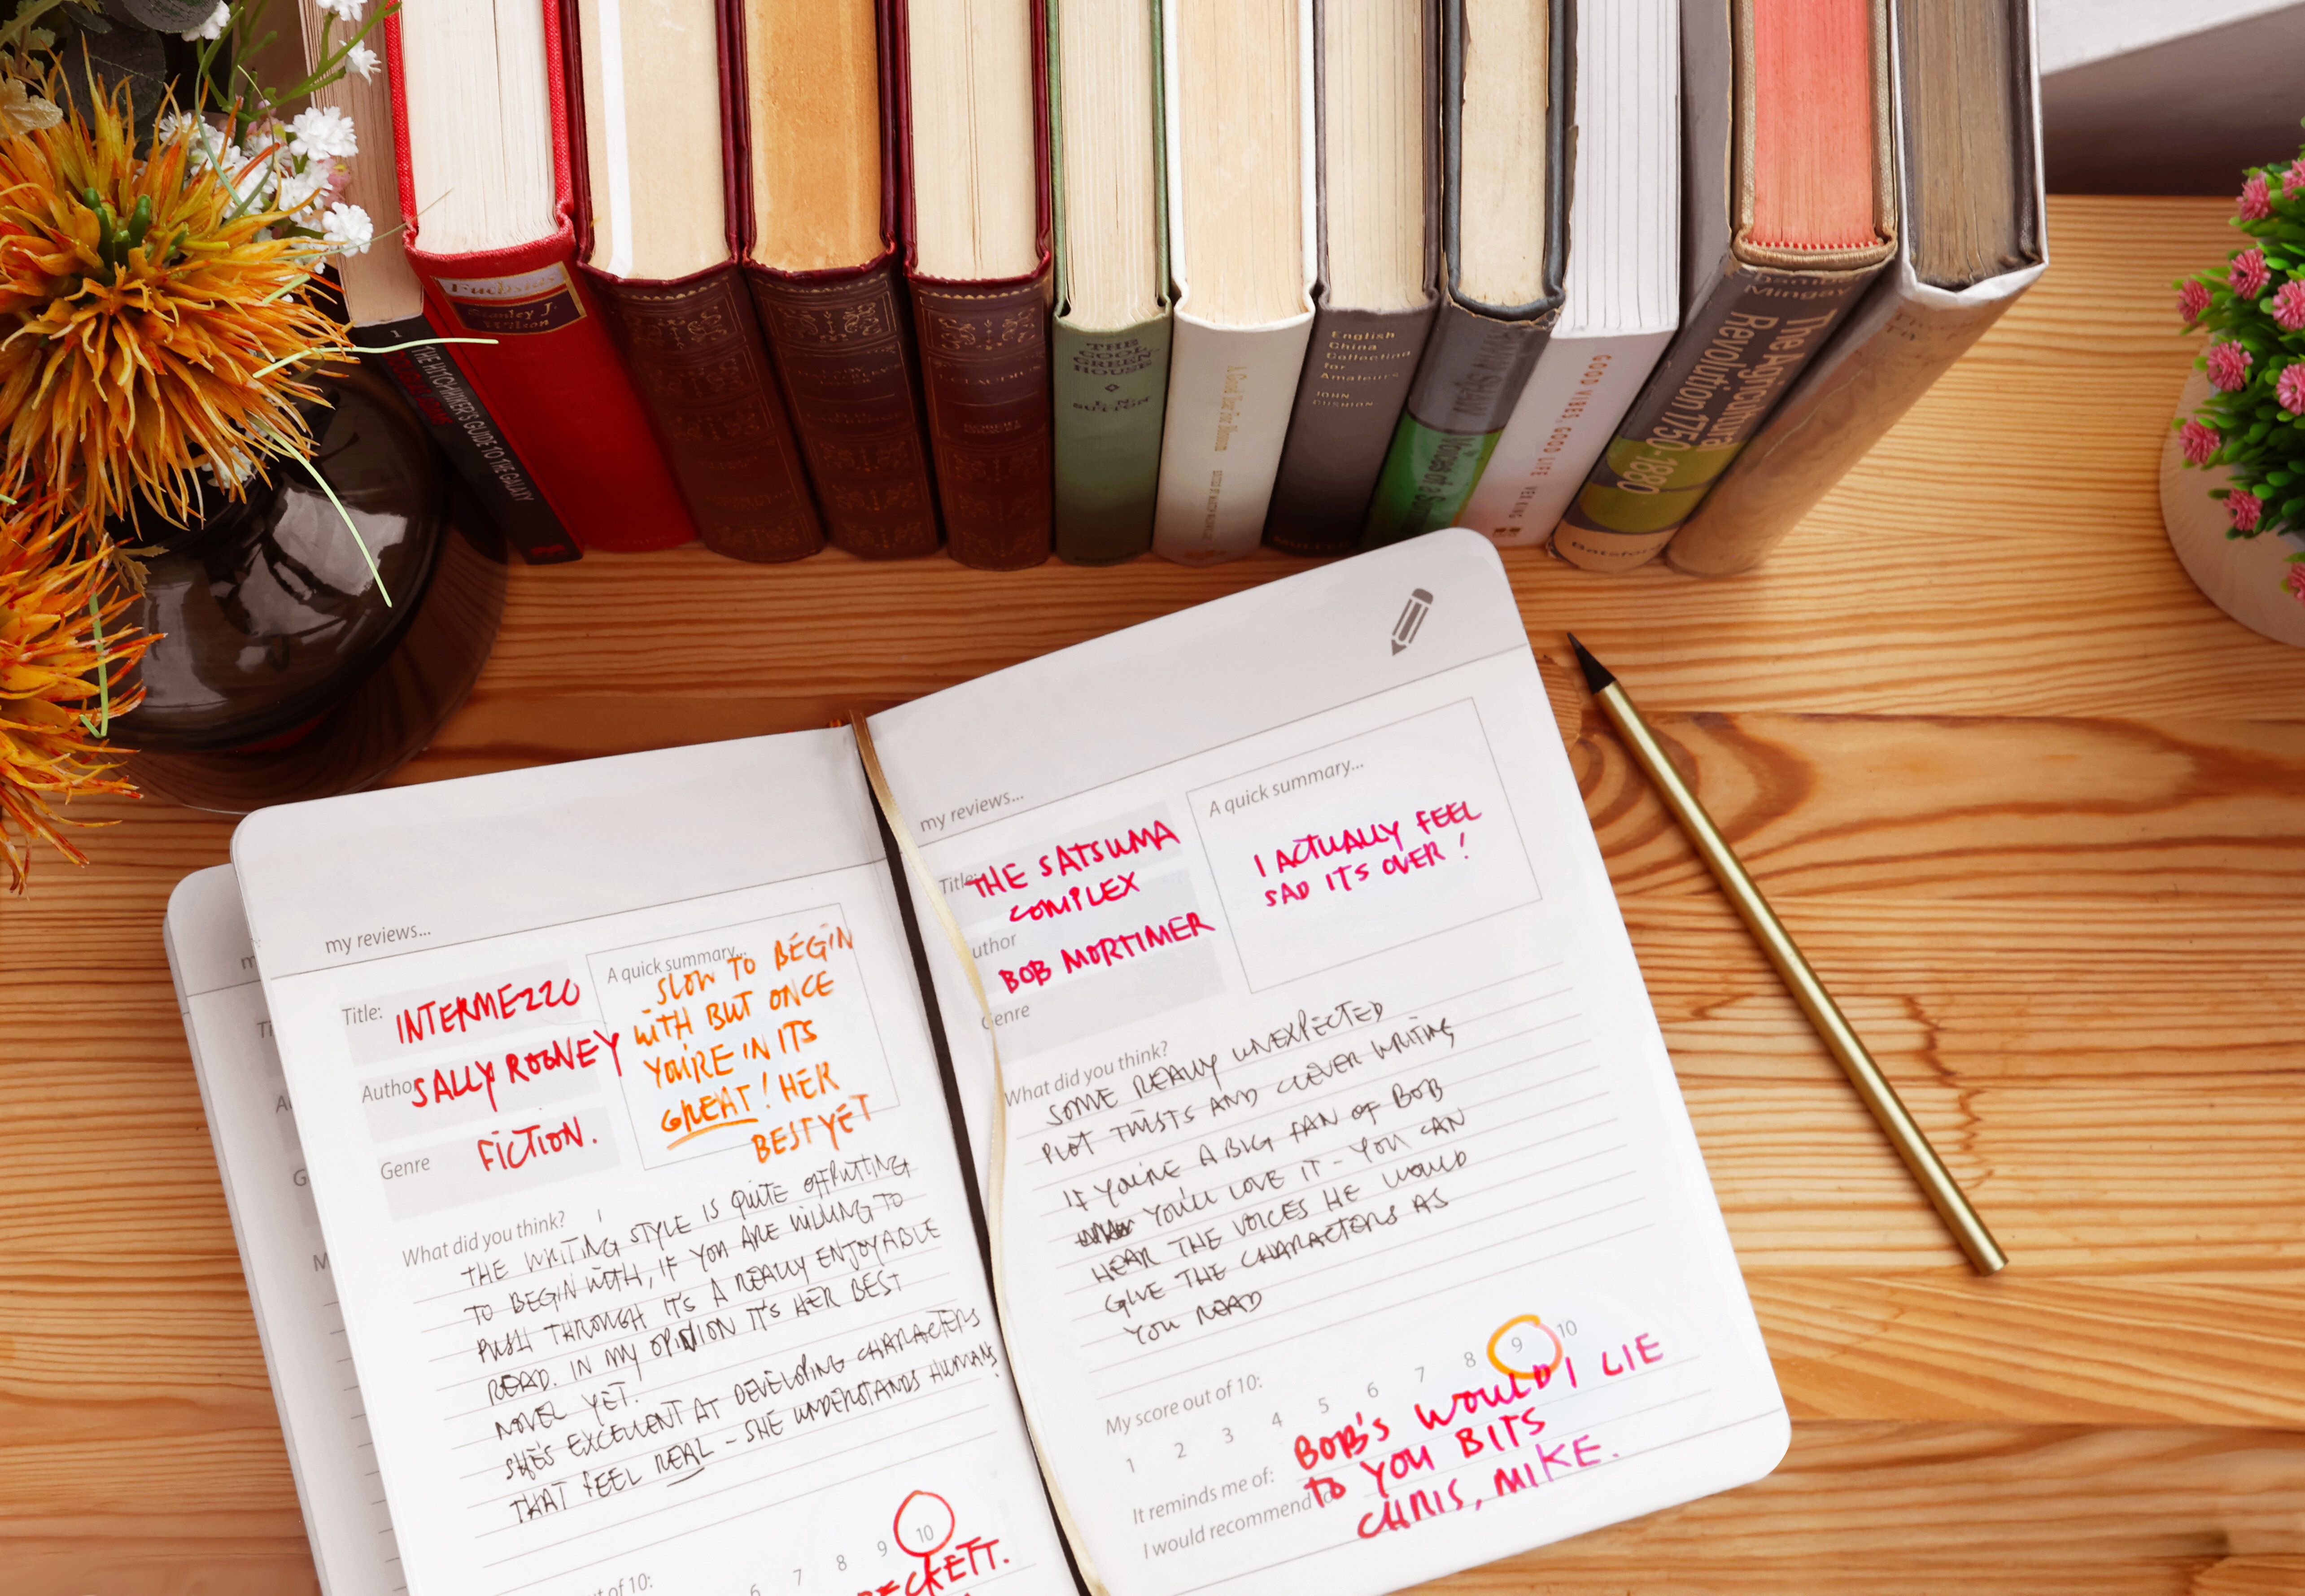 Fuchsias
Stanley J.
Wilson
1
THE HITCHHIKER'S GUIDE TO THE GALAXY
THE
COOL
GREEN
HOUSE
SUTTON
English
China
Collecting
for
Amateurs
JOHN
CUSHION
GOOD VIBES, GOOD LIFE VEX KING
Mingay
The Agricultural
Revolution 1750-1880
Batsford
my reviews...
Title: INTERMEZZO
Author SALLY ROONEY
Genre FICTION.
A quick summary...
SLOW TO BEGIN
WITH BUT ONCE
YOU'RE IN ITS
GREAT! HER
BEST YET
What did you think?
THE WRITING STYLE IS QUITE OFFPUTTING
TO BEGIN WITH, IF YOU ARE WILLING TO
PUSH THROUGH ITS A REALLY ENJOYABLE
READ. IN MY OPINION IT'S HER BEST
NOVEL YET.
SHE'S EXCELLENT AT DEVELOPING CHARACTERS
THAT FEEL REAL - SHE UNDERSTANDS HUMANS
out of 10:
6 7 8 9 10
ECKETT.
my reviews...
Title: THE SATSUMA
COMPLEX
uthor
BOB MORTIMER
Genre
A quick summary...
I ACTUALLY FEEL
SAD ITS OVER!
What did you think?
SOME REALLY UNEXPECTED
PLOT TWISTS AND CLEVER WRITING
IF YOU'RE A BIG FAN OF BOB
YOU'LL LOVE IT - YOU CAN
HEAR THE VOICES HE WOULD
GIVE THE CHARACTERS AS
YOU READ
My score out of 10:
1 2 3 4 5 6 7 8 9 10
It reminds me of: BOB'S WOULD I LIE
TO YOU BITS
I would recommend to CHRIS, MIKE.